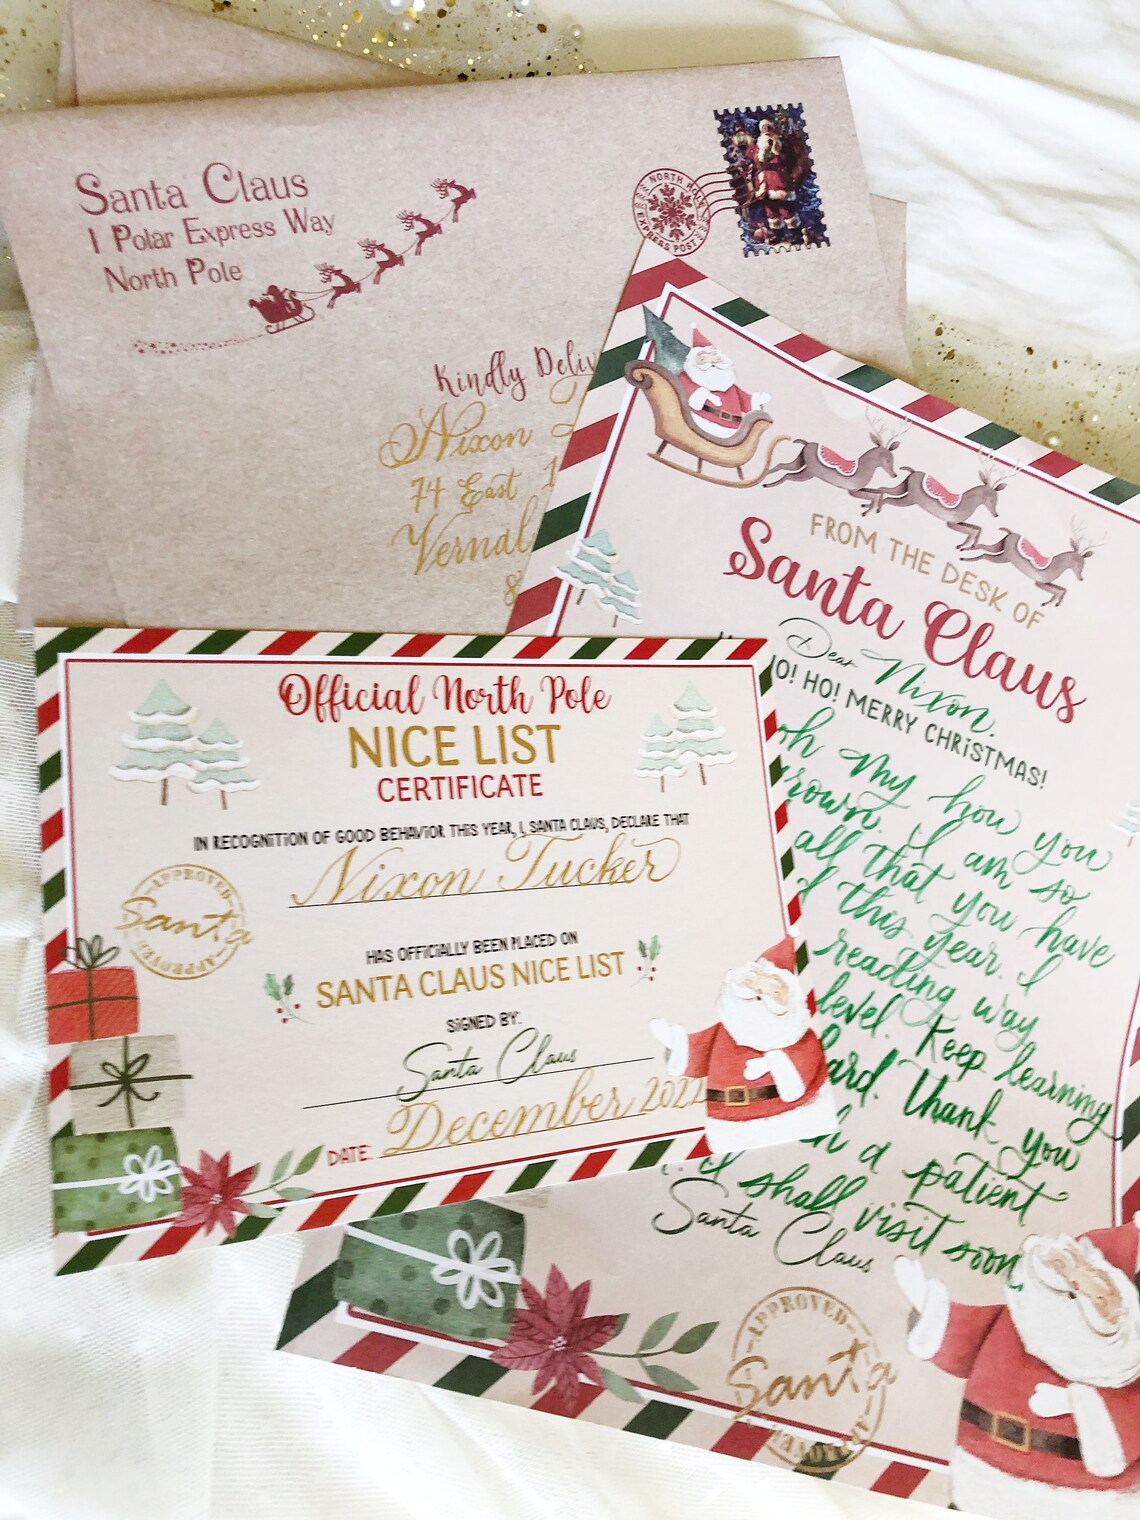 Santa Claus
1 Polar Express Way
North Pole
NORTH POLE
EXPRESS POST
Kindly Deliv
Nixon
74 East 1
Vernal
8
FROM THE DESK OF
Santa Claus
Dear Nixon,
HO! HO! MERRY CHRISTMAS!
oh my how you
grown. I am so
all that you have
this year. I
reading way
level. Keep learning
hard. Thank you
a patient
I shall visit soon,
Santa Claus
APPROVED
Santa
APPROVED
Official North Pole
NICE LIST
CERTIFICATE
IN RECOGNITION OF GOOD BEHAVIOR THIS YEAR, I, SANTA CLAUS, DECLARE THAT
Nixon Tucker
APPROVED
Santa
APPROVED
HAS OFFICIALLY BEEN PLACED ON
SANTA CLAUS NICE LIST
SIGNED BY:
Santa Claus
DATE: December 2022